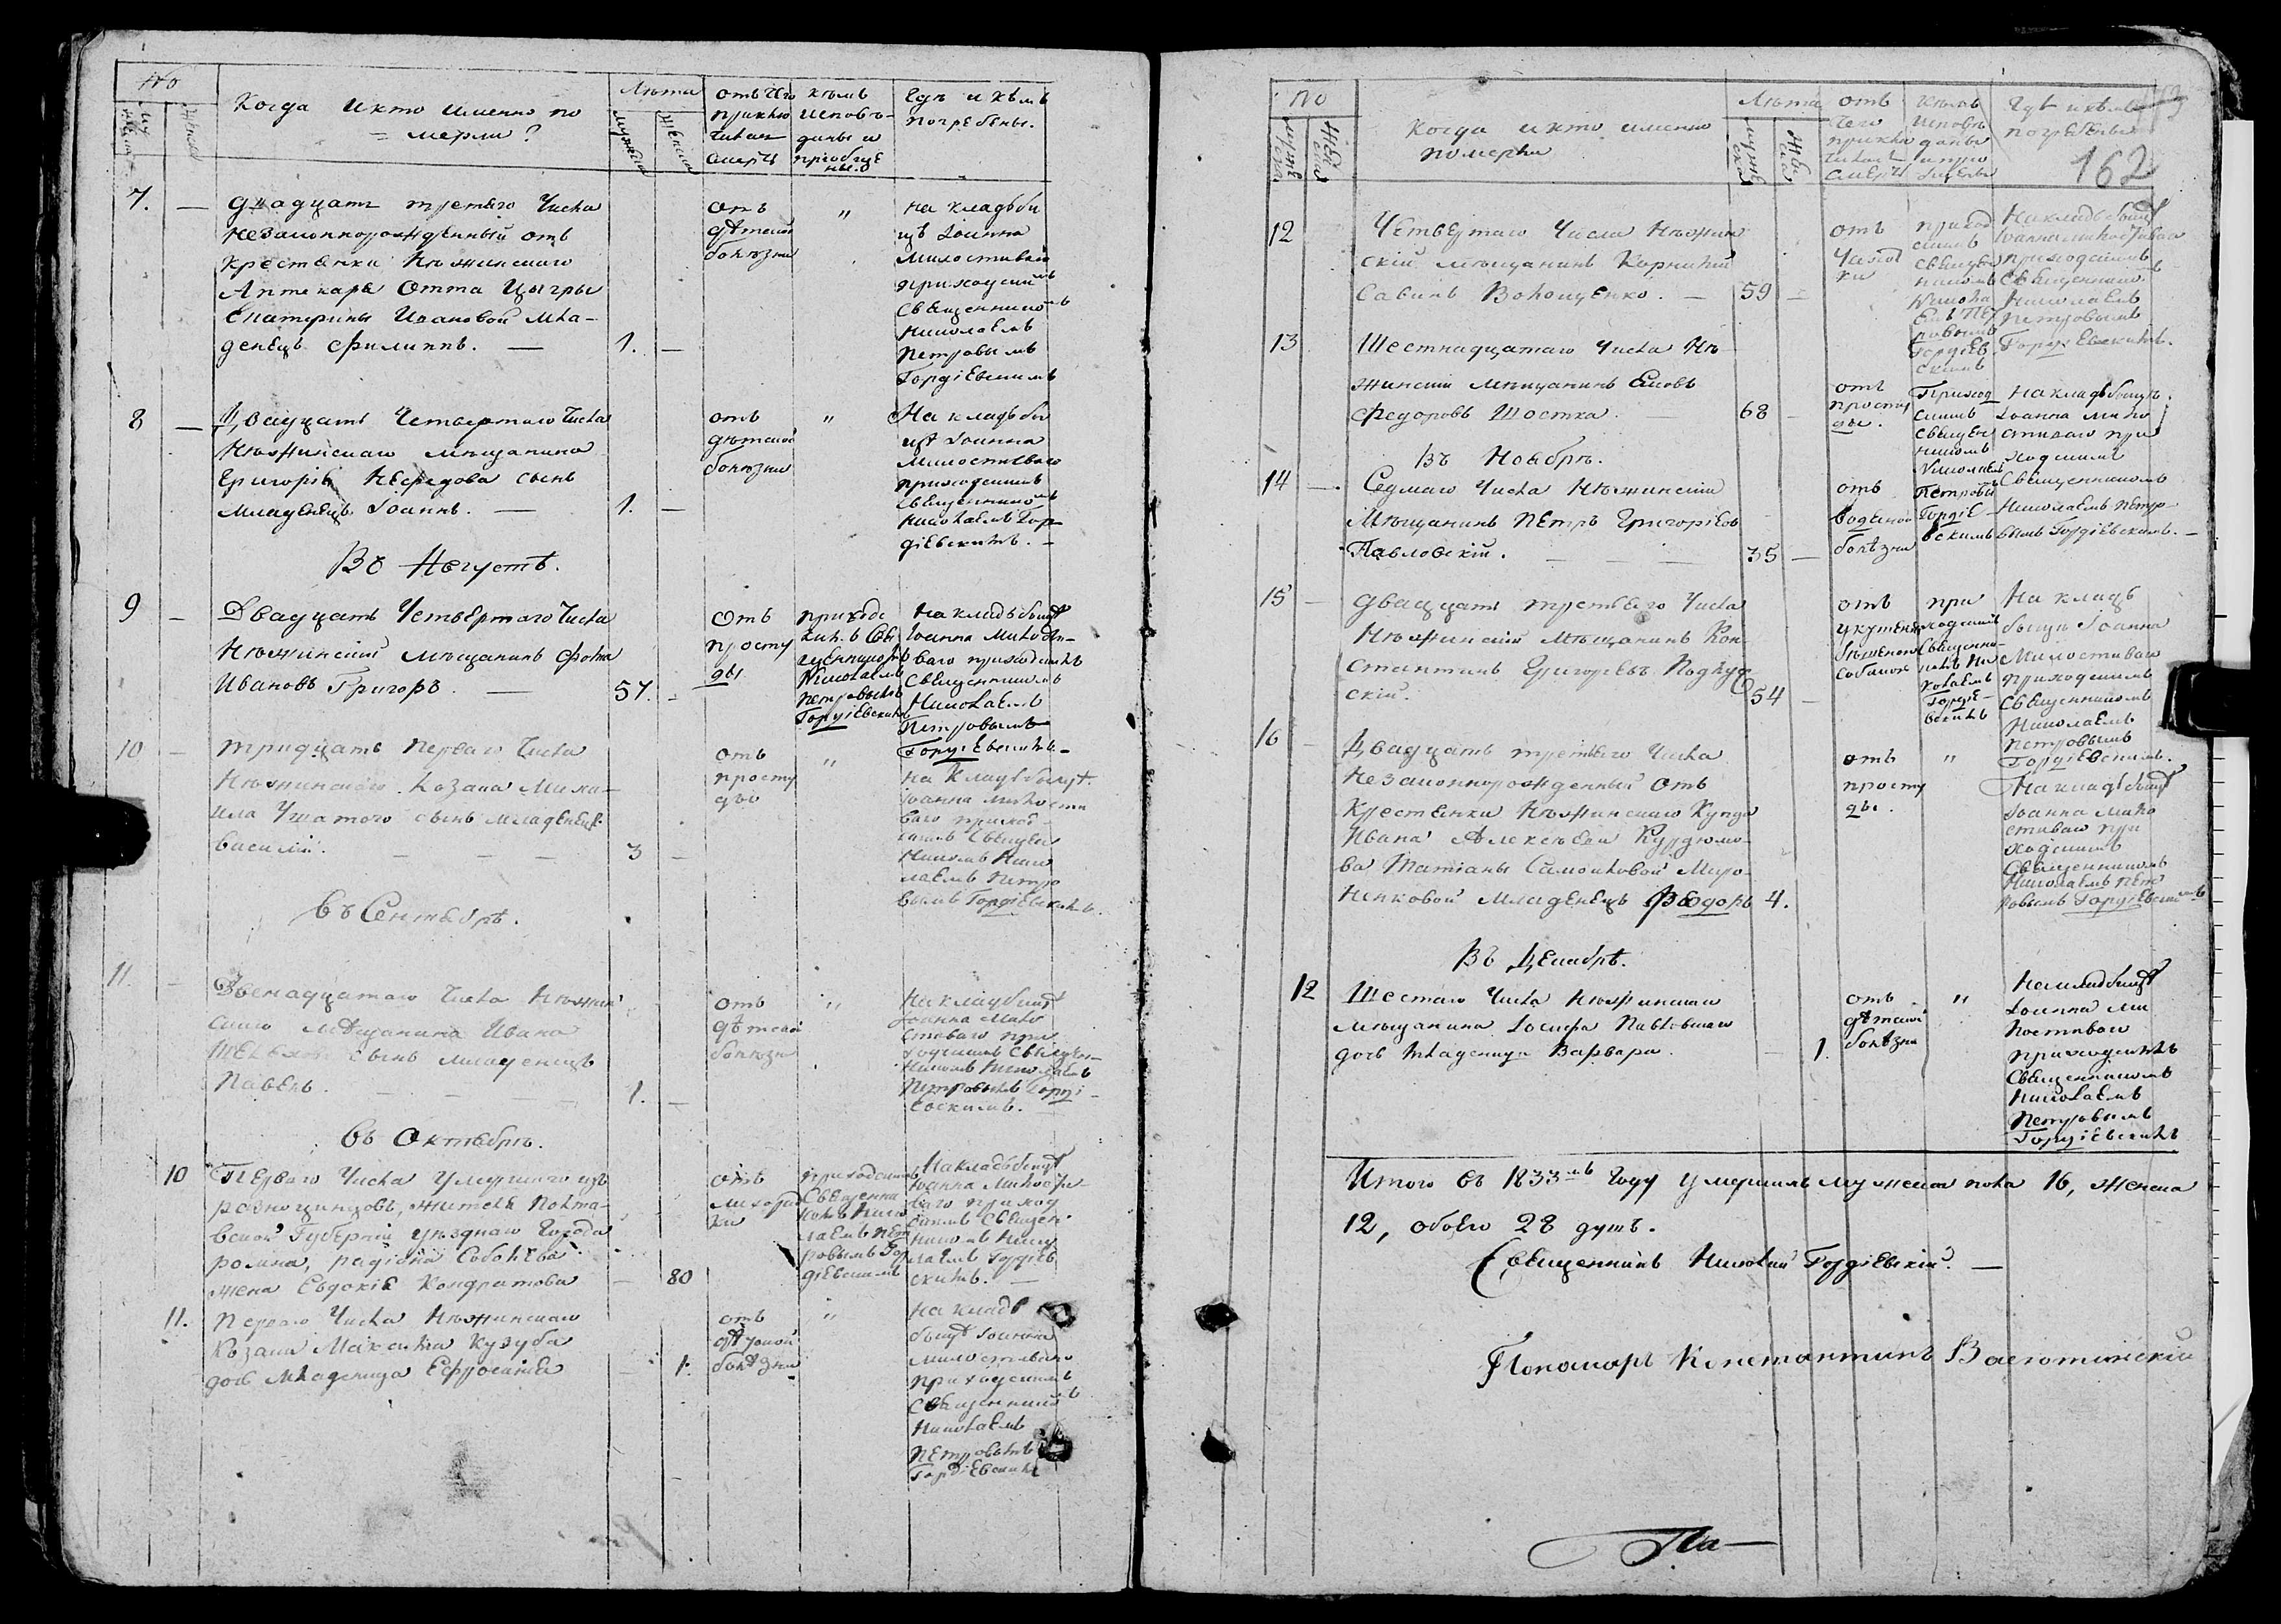 №
Когда и кто именно по
= мерли?
Лѣта
отъ чего
приклю
чилась
смерть
кѣмъ
исповѣ-
даны и
пріобще
ны.
Гдѣ и кѣмъ
погребены.
7. —
двадцать третьяго числа
незаконнорожденный отъ
крестянки Нѣжинскаго
Аптекаря Отта Цыгры
Екатерины Ивановой мла-
денецъ Филиппъ. —
1. —
отъ
дѣтской
болѣзни
"
на кладьби
щѣ Іоанна
Милостиваго
приходскимъ
Священникомъ
Николаемъ
Петровымъ
Гордіевскимъ
8 —
Двадцать четвертаго числа
Нѣжинскаго мѣщанина
Григорія сынъ
младенецъ Іоаннъ. —
1. —
отъ
дѣтской
болѣзни
"
На кладьби
щѣ Іоанна
Милостиваго
приходскимъ
Священникомъ
Николаемъ Гор-
діевскимъ. —
Въ Августѣ.
9 —
Двадцать четвертаго числа
Нѣжинскій мѣщанинъ Фома
Ивановъ Григоръ. —
57. —
отъ
просту
ды
приходс
кимъ Свя
щенникомъ
Николаемъ
Петровымъ
Гордіевскимъ
На кладьбищѣ
Іоанна Милости-
ваго приходскимъ
Священникомъ
Николаемъ
Петровымъ
Гордіевскимъ. —
10 —
тридцать перваго числа
Нѣжинскаго козака Миха-
ила Ушатого сынъ младенецъ
Василій. — — —
3 —
отъ
просту
ды
"
на кладьбищѣ
Іоанна Милости
ваго приход-
скимъ Священ
никомъ Нико
лаемъ Петро
вымъ Гордіевскимъ.
Въ Сентябрѣ.
11. —
Двенадцатаго числа Нѣжин
скаго мѣщанина Ивана
сынъ младенецъ
Павелъ. — — —
1. —
отъ
дѣтской
болѣзни
"
На кладбищѣ
Іоанна Мило
стиваго при
ходскимъ Священ-
никомъ Николаемъ
Петровымъ Горді-
евскимъ.
Въ Октябрѣ.
10
Перваго числа умершаго изъ
разночинцовъ, жителя Полта-
вской Губерніи уѣзднаго города
ромна, радіона Соболева
жена Евдокія Кондратова
— 80
отъ
лихорад
ки
приходскимъ
Священни
комъ Нико
лаемъ Пет
ровымъ Гор
діевскимъ
На кладьбищѣ
Іоанна Милости-
ваго приход
скимъ Священ-
никомъ Нико
лаемъ Гордіев
скимъ. —
11.
перваго числа Нѣжинскаго
Козака Максима Кузуба
дочь младеница Ефросинія
— 1.
отъ
дѣтской
болѣзни
"
на кладь
бищѣ Іоанна
милостиваго
приходскимъ
Священникомъ
Николаемъ
Петровымъ
Гордіевскимъ
№
Когда и кто именно
померли
Лѣта
отъ
чего
приклю
чилась
смерть
кѣмъ
исповѣ
даны
и прі
общены
Гдѣ и кѣмъ
погребены
162
12
Четвертаго числа Нѣжин
скій мѣщанинъ Корнилій
Савинъ Волощенко. —
59 —
отъ
чахот
ки
приход
скимъ
священ
никомъ
Никола
емъ Пет
ровымъ
Гордіев
скимъ
На кладьбищѣ
Іоанна Милостиваго
приходскимъ
Священником.
Николаемъ
Петровымъ
Гордіевскимъ.
13
Шестнадцатаго числа Нѣ-
жинскій мѣщанинъ Яковъ
Федоровъ Шостка.
68 —
отъ
просту
ды.
Приход
скимъ
священ
никомъ
Николаемъ
Петровы
Гордіе
вскимъ
На кладьбищѣ.
Іоанна Мило
стиваго при
ходскимъ
Священникомъ
Николаемъ Петро-
вымъ Гордіевскимъ. —
Въ Ноябрѣ.
14 —.
Седмаго числа Нѣжинскій
Мѣщанинъ Петръ Григоріевъ
Павловскій. — — —
35 —
отъ
водяной
болѣзни
15 —
двадцать третьяго числа
Нѣжинскій мѣщанинъ Кон-
стантинъ Григорьевъ
скій.
54 —
отъ
укушенія
бѣшеной
собакою
при
ходскимъ
Священни-
комъ Ни
колаемъ
Гордіе-
вскимъ
На кладь
бищѣ Іоанна
Милостиваго
приходскимъ
Священникомъ
Николаемъ
Петровымъ
Гордіевскимъ.
16 —
Двадцать третьяго числа
Незаконнорожденный отъ
Крестянки Нѣжинскаго Купца
Ивана Алексѣева Курдюмо-
ва Татіаны Самойловой Миро-
ненковой младенецъ Федоръ
4.
отъ
просту
ды.
"
На кладьбищѣ
Іоанна Мило
стиваго при
ходскимъ
Священникомъ
Николаемъ Пет
ровымъ Гордіевскимъ
Въ Декабрѣ.
12
Шестаго числа Нѣжинскаго
мѣщанина Іосифа Павловскаго
дочь младеница Варвара.
— 1.
отъ
дѣтской
болѣзни
"
На кладбищѣ
Іоанна Ми
лостиваго
приходскимъ
Священникомъ
Николаемъ
Петровымъ
Гордіевскимъ
Итого въ 1833мъ году умершихъ мужеска пола 16, женска
12, обоего 28 душъ.
Священникъ Николай Гордіевскій. —
Пономарь Константинъ